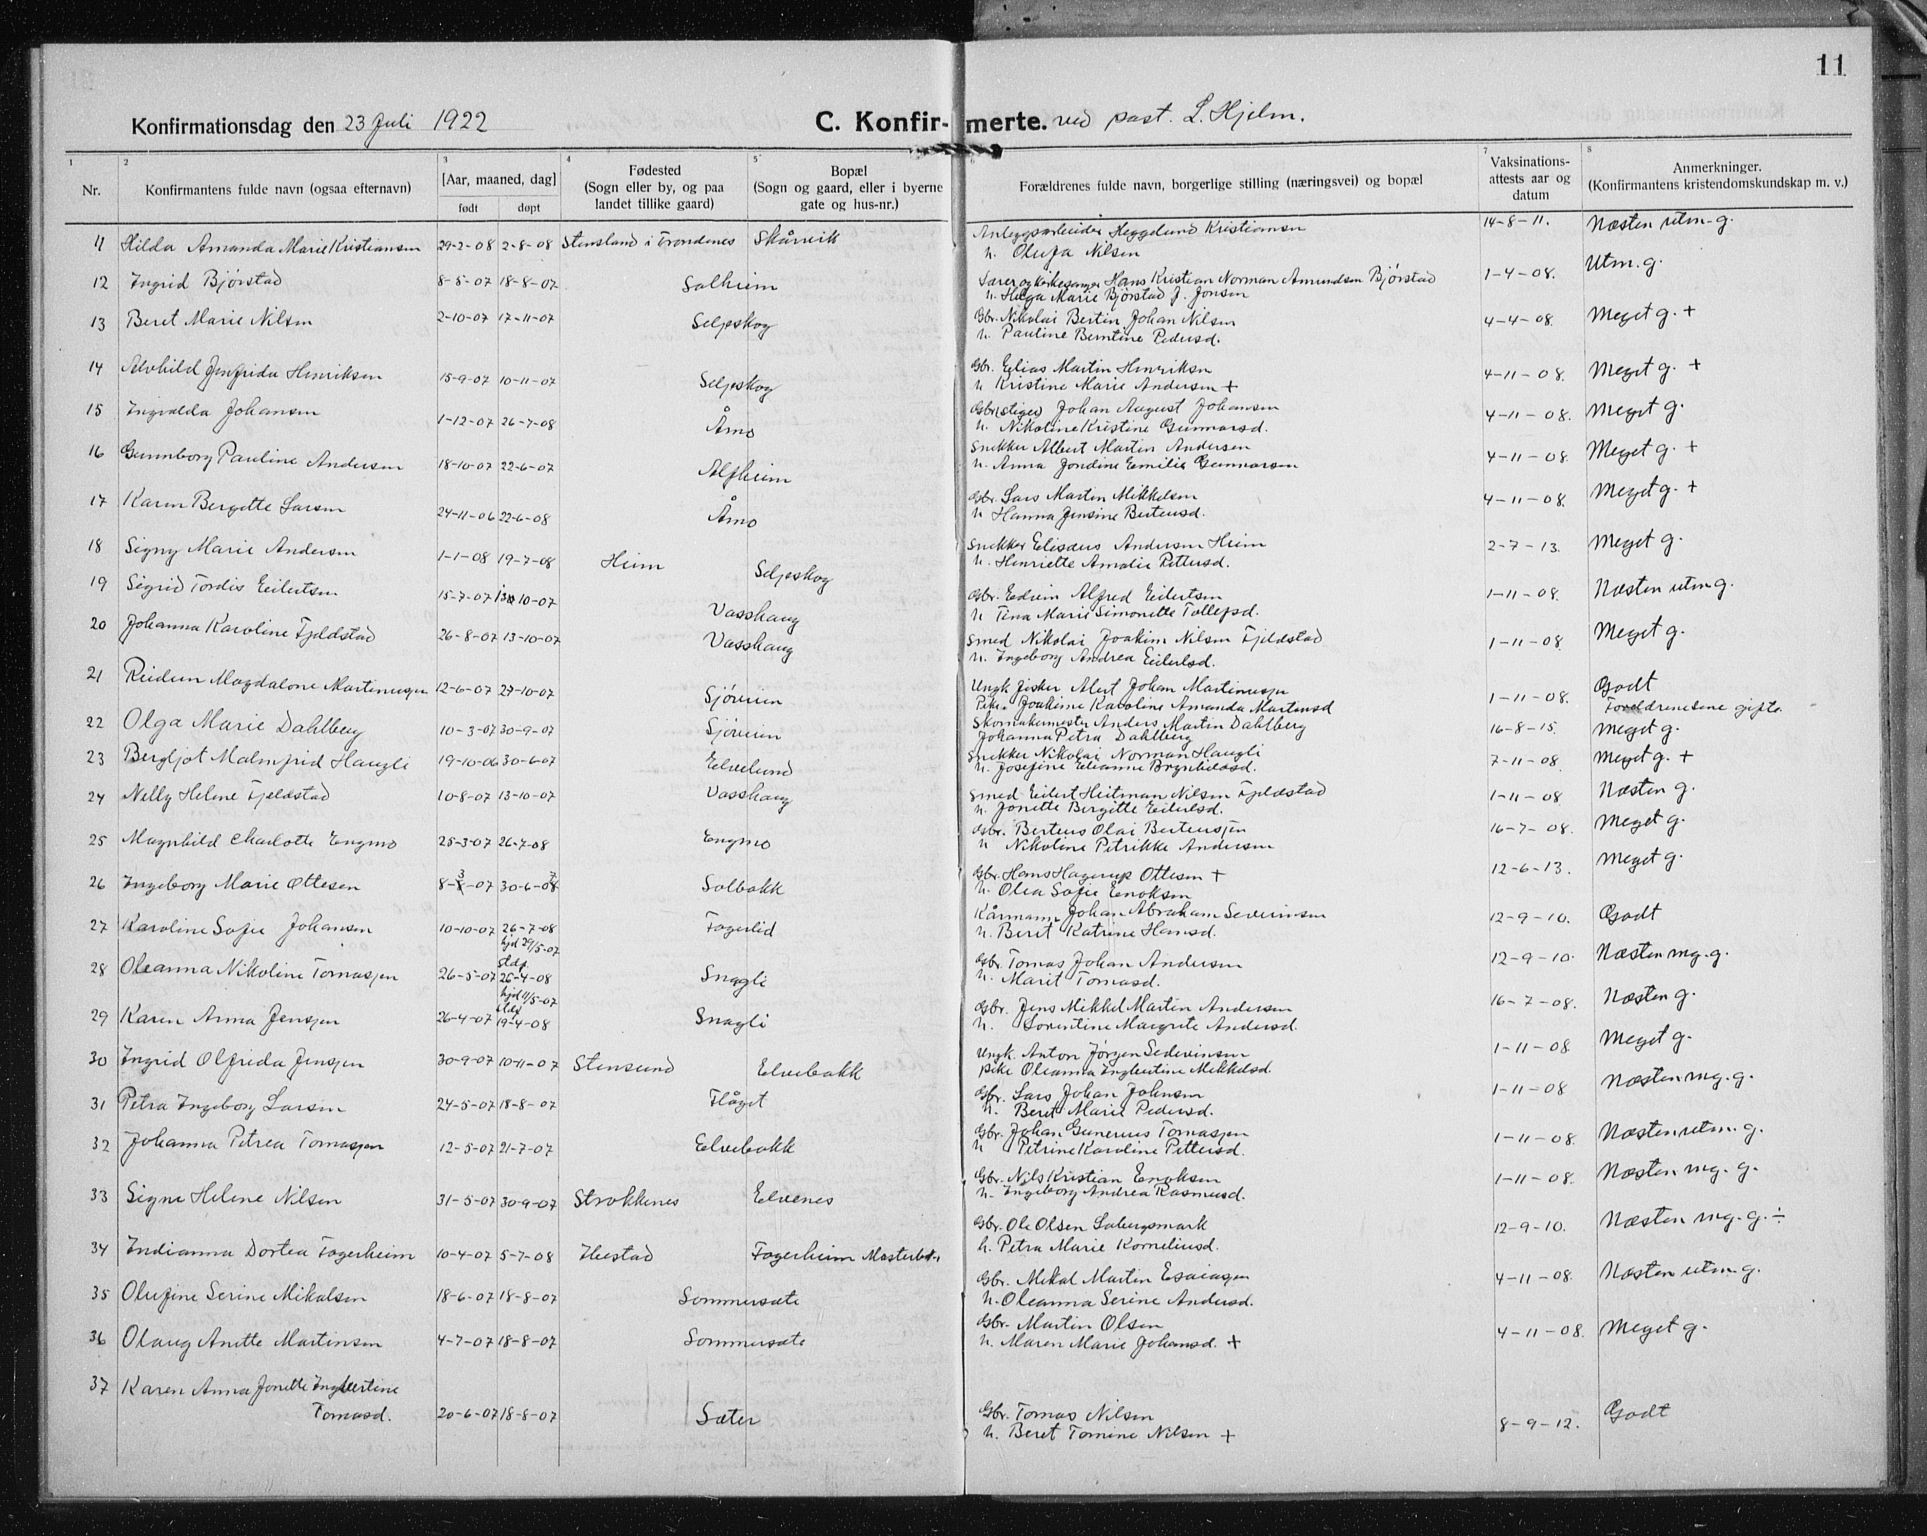 11
Konfirmationsdag den 23 Juli 1922 C. Konfirmerte. ved past. L. Hjelm.
1 2 3 4 5 7 8
Nr. Konfirmantens fulde navn (ogsaa efternavn) [Aar, maaned, dag] født døpt Fødested (Sogn eller by, og paa landet tillike gaard) Bopæl (Sogn og gaard, eller i byerne gate og hus-nr.) Forældrenes fulde navn, borgerlige stilling (næringsvei) og bopæl Vaksinations-attests aar og datum Anmerkninger. (Konfirmantens kristendomskundskap m. v.)
11 Hilda Amanda Marie Kristiansen 29-2-08 2-8-08 Stensland i Trondenes Skårvik Anlegsarbeider Heggelund Kristiansen 14-8-11. Næsten utm-g.
h. Olufa Nilsen
12 Ingrid Bjørstad 8-5-07 18-8-07 Solheim Lærer og kirkesanger Hans Kristian Norman Amundsen Bjørstad 1-4-08. Utm. g.
h. Helga Marie Bjørstad f. Jonsen
13 Beret Marie Nilsen 2-10-07 17-11-07 Seljeskog Gbr. Nikolai Bertin Johan Nilsen 4-4-08. Meget g. +
h. Pauline Berntine Pedersd.
14 Alvhild Jenfrida Henriksen 15-9-07 10-11-07 Seljeskog Gbr. Eilias Martin Henriksen 4-11-08. Meget g. +
h Kristine Marie Andersen +
15 Ingvalda Johansen 1-12-07 26-7-08 Åmo Gbr. Johan August Johansen 4-11-08. Meget g.
h. Nikoline Kristine Gunnarsd.
16 Gunnborg Pauline Andersen 18-10-07 22-6-07 Alfheim Snekker Albert Martin Andersen 4-11-08. Meget g. +
h. Anna Jondine Emilie Gunnarsen
17 Karen Bergette Larsen 24-11-06 22-6-08 Åmo Gbr. Lars Martin Mikkelsen 4-11-08. Meget g. +
h Hanna Jensine Bertensd.
18 Signy Marie Andersen 1-1-08 19-7-08 Heim Seljeskog Snekker Elisæus Andersen Heim 2-7-13. Meget g.
h. Henriette Amalie Pettersd.
19 Sigrid Tordis Eilertsen 15-7-07 13-10-07 Vasshaug Gbr. Edvin Alfred Eilertsen 1-11-08. Næsten utm g.
h Tina Marie Simonette Tollefsd.
20 Johanna Karoline Fjeldstad 26-8-07 13-10-07 Vasshaug Smed Nikolai Joakim Nilsen Fjeldstad 1-11-08. Meget g.
h. Ingeborg Andrea Eilertsd.
21 Reidun Magdalone Martinussen 12-6-07 27-10-07 Sjøveien Ungk fisker Alert Johan Martinussen 1-11-08. Godt
Pike Joakime Karoline Amanda Martinsd Foreldrenesene gifte.
22 Olga Marie Dahlberg 10-3-07 30-9-07 Sjøveien Skomakermester Anders Martin Dahlberg 16-8-15. Meget g.
Johanna Petra Dahlberg
23 Bergljot Malmfrid Haugli 19-10-06 30-6-07 Elvelund Snekker Nikolai Norman Haugli 7-11-08. Meget g. +
h. Josefine Elianne Brynhildsd.
24 Nelly Helene Fjeldstad 10-8-07 13-10-07 Vasshaug Smed Eilert Heitman Nilsen Fjeldstad 1-11-08 Næsten g.
h. Jonette Bergitte Eilertsd.
25 Magnhild Charlotte Engmo 25-3-07 26-7-08 Engmo Gbr. Berteus Olai Berteussen 16-7-08. Meget g.
h Nikoline Petrikke Andersen
26 Ingeborg Marie Ottesen 8-3-07 30-6-07 Solbakk Gbr. Hans Hagerup Ottesen + 12-6-13. Meget g.
h. Olea Sofie Enoksen
27 Karoline Sofie Johansen 10-10-07 26-7-08 Fagerlid Kårmann Johan Abraham Severinsen 12-9-10. Godt
h. Beret Katrine Hansd.
28 Oleanna Nikoline Tomassen 26-5-07 hjd 29/5-07 stdf 26-4-08 Snagli Gbr. Tomas Johan Andersen 12-9-10. Næsten mg. g.
h. Marit Tomasd.
29 Karen Anna Jenssen 26-4-07 hjd 11/5-07 stdf 19-4-08 Snagli Gbr. Jens Mikkel Martin Andersen 16-7-08. Næsten g.
h. Lorentine Margrete Andersd.
30 Ingrid Olfrida Jenssen 30-9-07 10-11-07 Stensund Elvebakk Ungk. Anton Jørgen Sedevinsen 1-11-08 Meget g.
pike Oleanna Ingbertine Mikkelsd
31 Petra Ingeborg Larsen 24-5-07 18-8-07 Flåget Gbr. Lars Johan Johnsen 1-11-08 Næsten mg. g.
h. Beret Marie Pedersd.
32 Johanna Petrea Tomassen 12-5-07 21-7-07 Elvebakk Gbr. Johan Gunerius Tomassen 1-11-08. Næsten utm. g.
h Petrine Karoline Pettersd.
33 Signe Helene Nilsen 31-5-07 30-9-07 Strokkenes Elvenes Gbr. Nils Kristian Enoksen 1-11-08. Næsten mg. g.
h. Ingeborg Andrea Rasmusd.
34 Indianna Dortea Fagerheim 10-4-07 5-7-08 Hestad Fagerheim Gbr. Ole Olsen Labergsmark 12-9-10. Næsten mg. g. ÷
h. Petra Marie Korneliusd.
35 Olufine Serine Mikalsen 18-6-07 18-8-07 Sommersæte Gbr. Mikal Martin Esaiassen 4-11-08. Næsten utm. g.
h. Oleanna Serine Andersd.
36 Olaug Anette Martinsen 4-7-07 18-8-07 Sommersæte Gbr. Martin Olsen 4-11-08. Meget g.
h. Maren Marie Johansd. +
37 Karen Anna Jonette Ingbertine
Tomasd. 20-6-07 18-8-07 Sæter Gbr. Tomas Nilsen 8-9-12. Godt
h. Beret Tomine Nilsen +